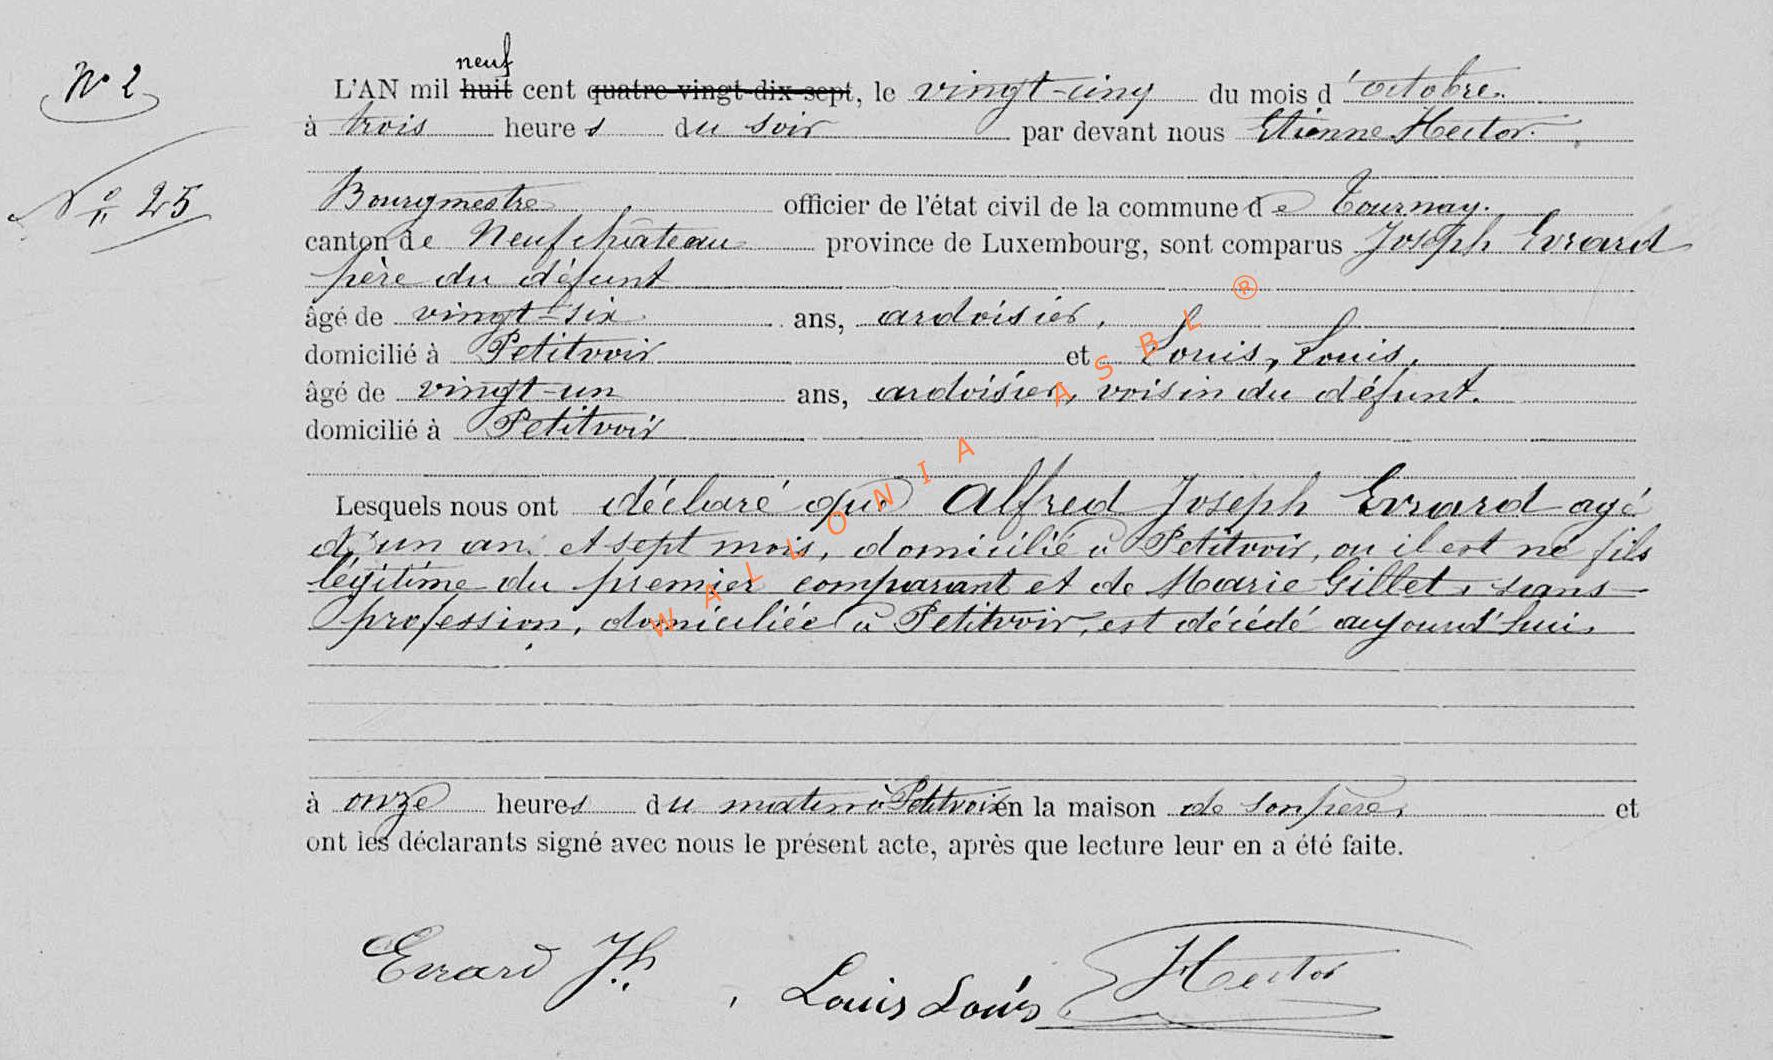 N° 2
N° 25
neuf
L'AN mil huit cent quatre-vingt-dix-sept, le vingt-cinq du mois d'octobre.
à trois heures du soir par devant nous Etienne Hector.
Bourgmestre officier de l'état civil de la commune de Tournay.
canton de Neufchâteau province de Luxembourg, sont comparus Joseph Evrard
père du défunt
âgé de vingt-six ans, ardoisier,
domicilié à Petitvoir et Louis, Louis,
âgé de vingt-un ans, ardoisier, voisin du défunt.
domicilié à Petitvoir
Lesquels nous ont déclaré que Alfred Joseph Evrard agé
d'un an et sept mois, domicilié à Petitvoir, ou il est né fils
légitime du premier comparant et de Marie Gillet, sans
profession, domiciliée à Petitvoir, est décédé aujourd'hui,
à onze heures du matin à Petitvoir en la maison de son père, et
ont les déclarants signé avec nous le présent acte, après que lecture leur en a été faite.
Evrard Jh
Louis Louis
Hector
WALLONIA ASBL ®